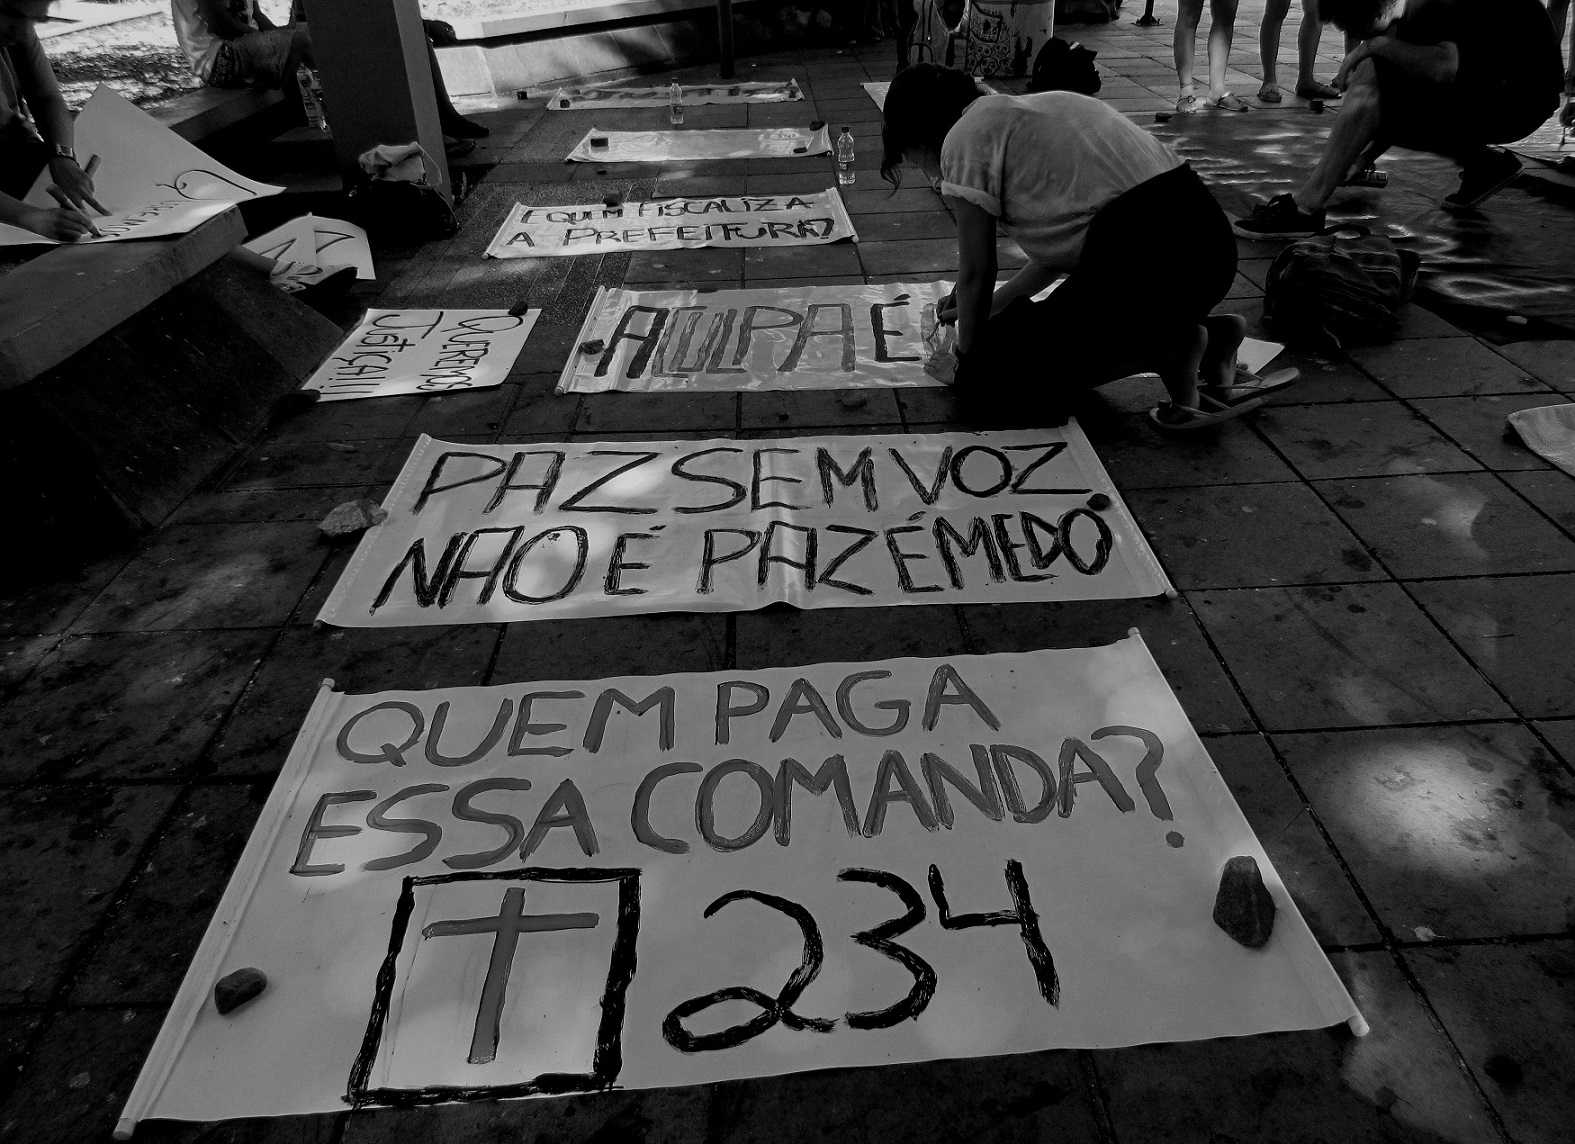 E QUEM FISCALIZA
A PREFEITURA?
QUEREMOS
JUSTIÇA!!!
A CULPA É
PAZ SEM VOZ
NÃO É PAZ É MEDO
QUEM PAGA
ESSA COMANDA?
234